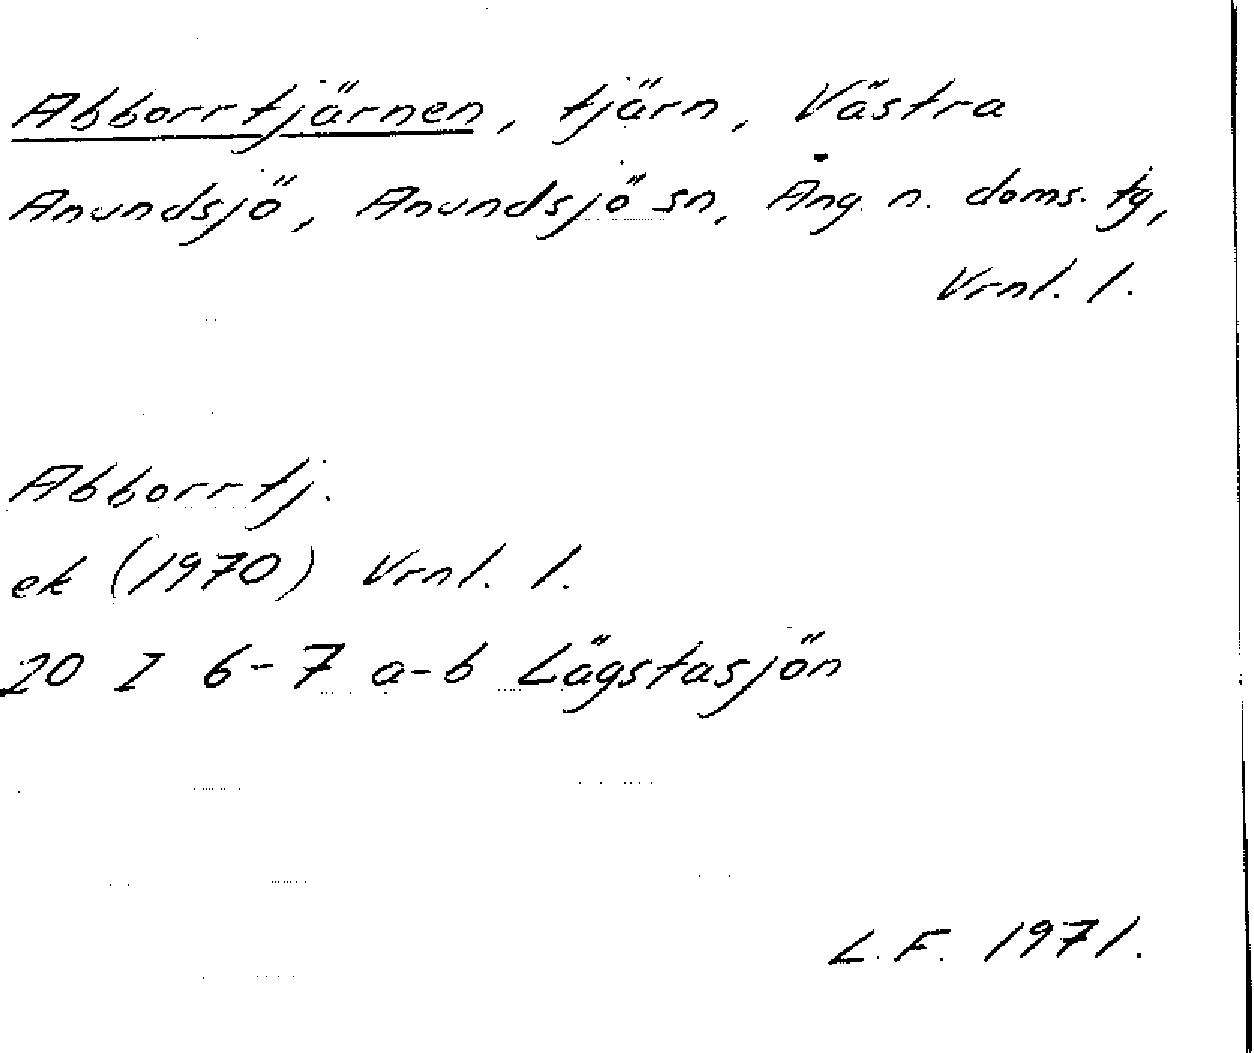 Abborrtjärnen, tjärn, Västra
Anundsjö, Anundsjö sn, Ång. n. doms. tg,
Vrnl. l.
Abborrtj.
ek (1970) Vrnl. l.
20 I 6-7 a-b Lägstasjön
L.F. 1971.